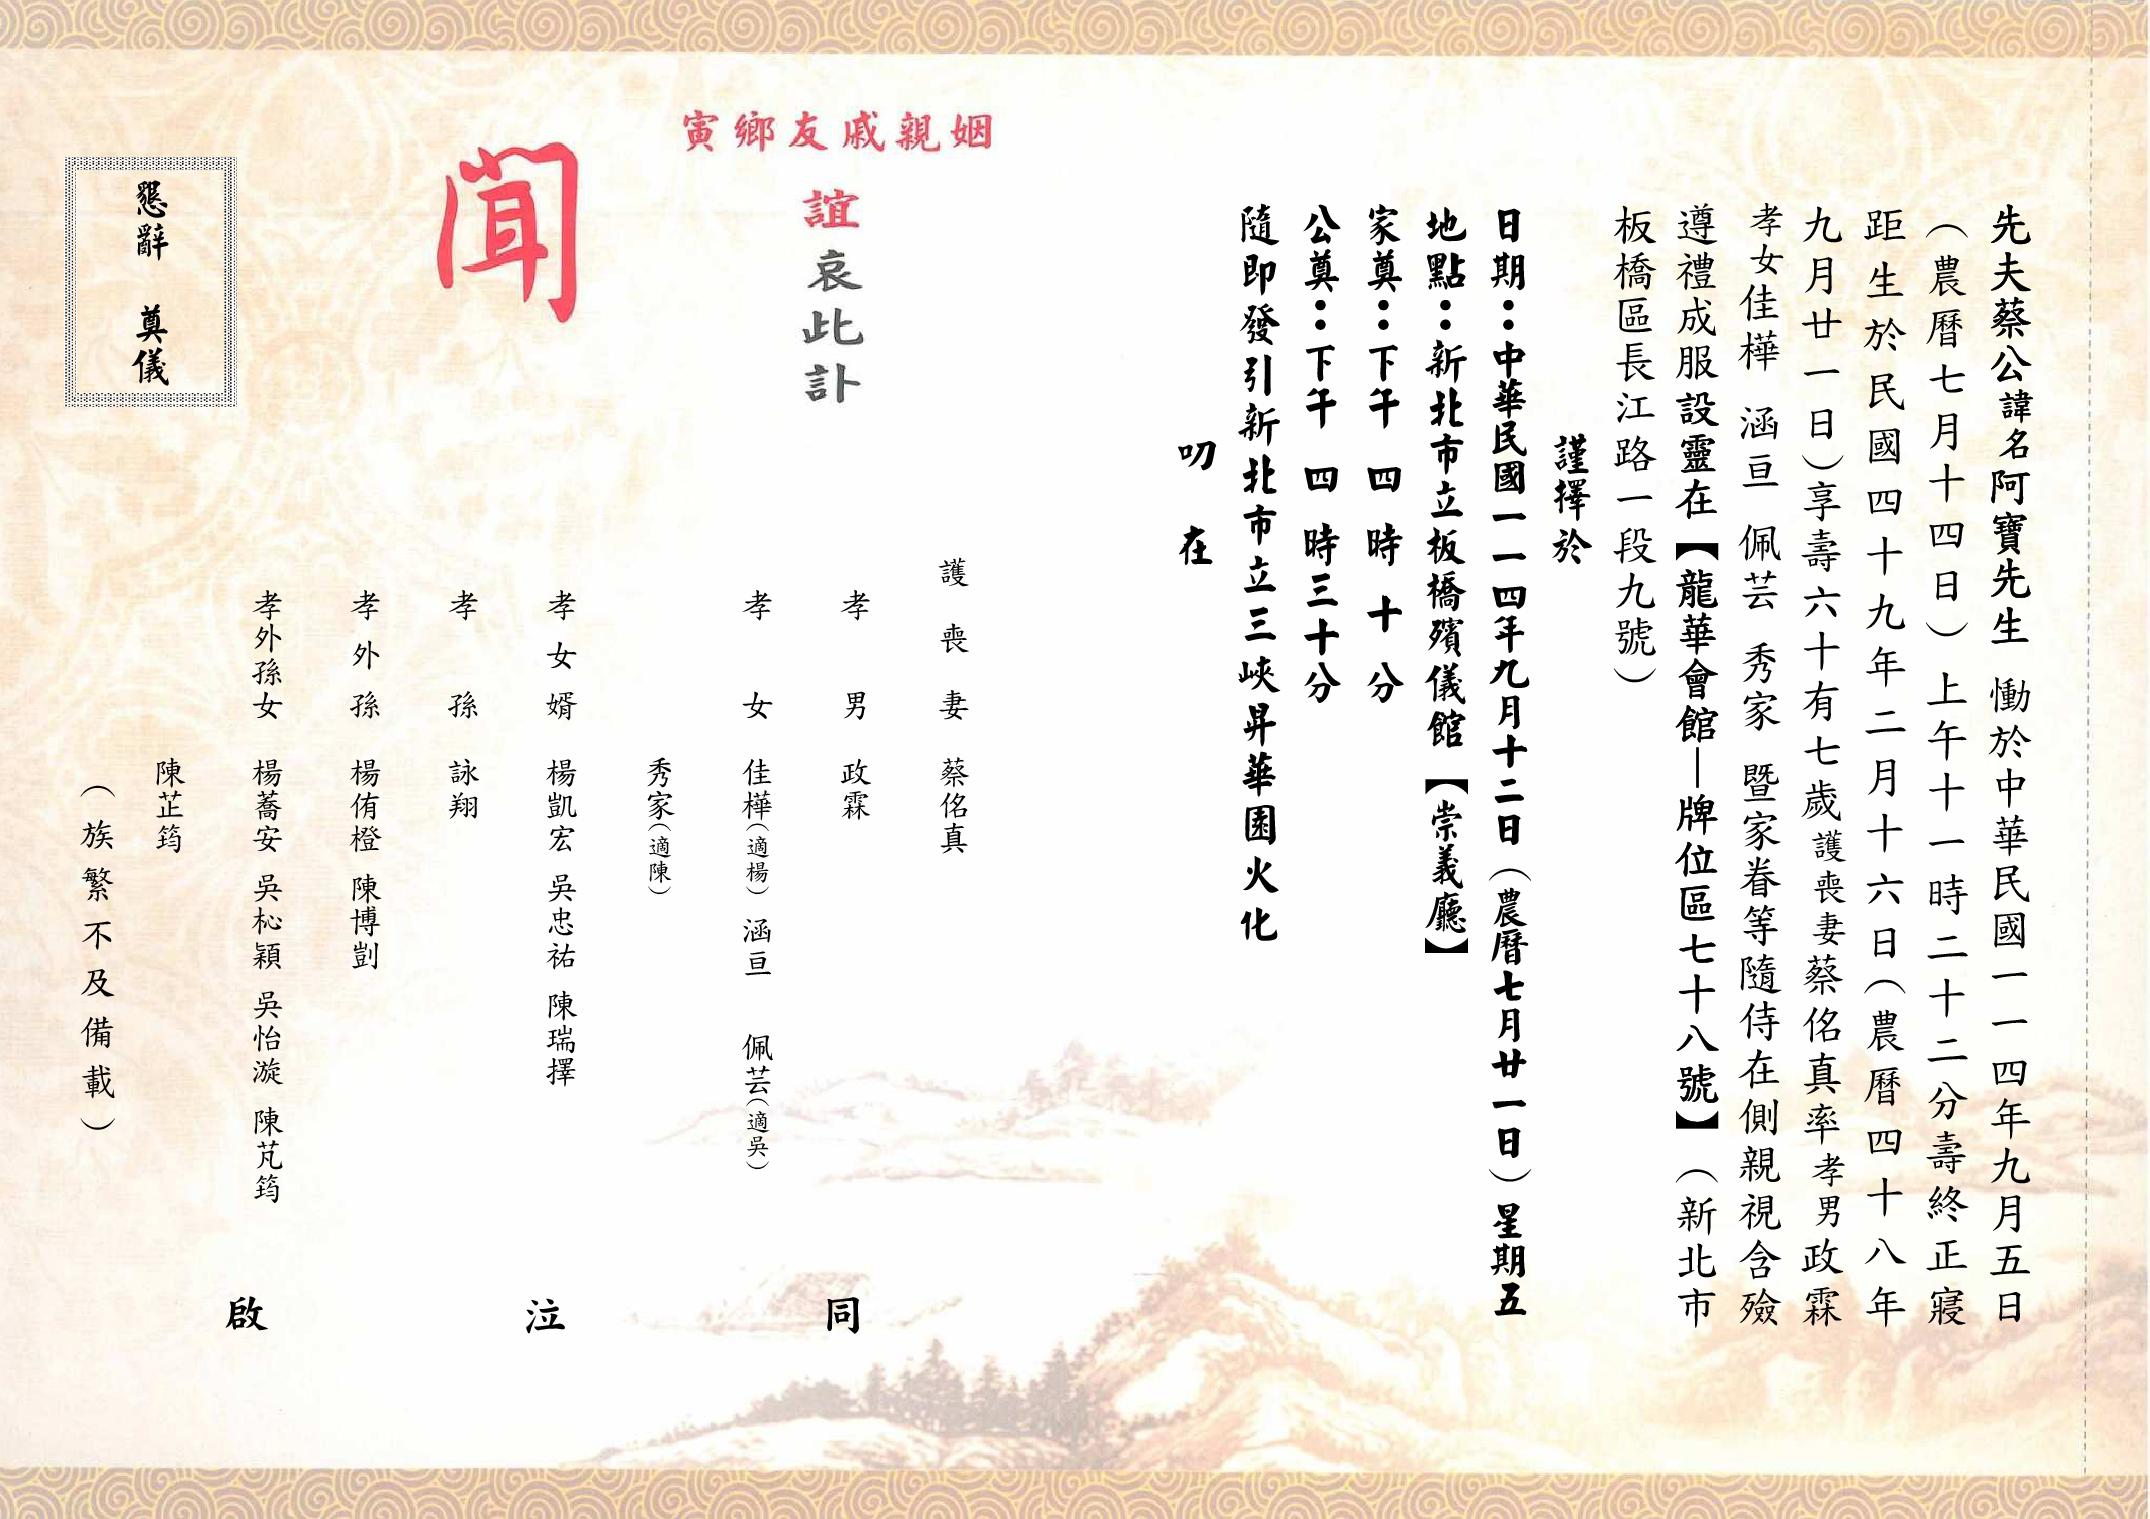 先夫蔡公諱名阿寶先生 慟於中華民國一一四年九月五日
（農曆七月十四日）上午十一時二十二分壽終正寢
距生於民國四十九年二月十六日（農曆四十八年
九月廿一日）享壽六十有七歲護喪妻蔡佲真率孝男政霖
孝女佳樺 涵亘 佩芸 秀家 暨家眷等隨侍在側親視含殮
遵禮成服設靈在【龍華會館—牌位區七十八號】（新北市
板橋區長江路一段九號）
謹擇於
日期：中華民國一一四年九月十二日（農曆七月廿一日）星期五
地點：新北市立板橋殯儀館【崇義廳】
家奠：下午 四 時 十 分
公奠：下午 四 時三十分
隨即發引新北市立三峽昇華園火化
叨 在
姻親戚友鄉寅
誼哀此訃
聞
護喪妻 蔡佲真
孝男 政霖
孝女 佳樺（適楊） 涵亘 佩芸（適吳）
秀家（適陳）
孝女婿 楊凱宏 吳忠祐 陳瑞擇
孝孫 詠翔
孝外孫 楊侑橙 陳博剴
孝外孫女 楊蕎安 吳杺穎 吳怡漩 陳芃筠
陳芷筠
（族繁不及備載）
同 泣 啟
懇辭 奠儀